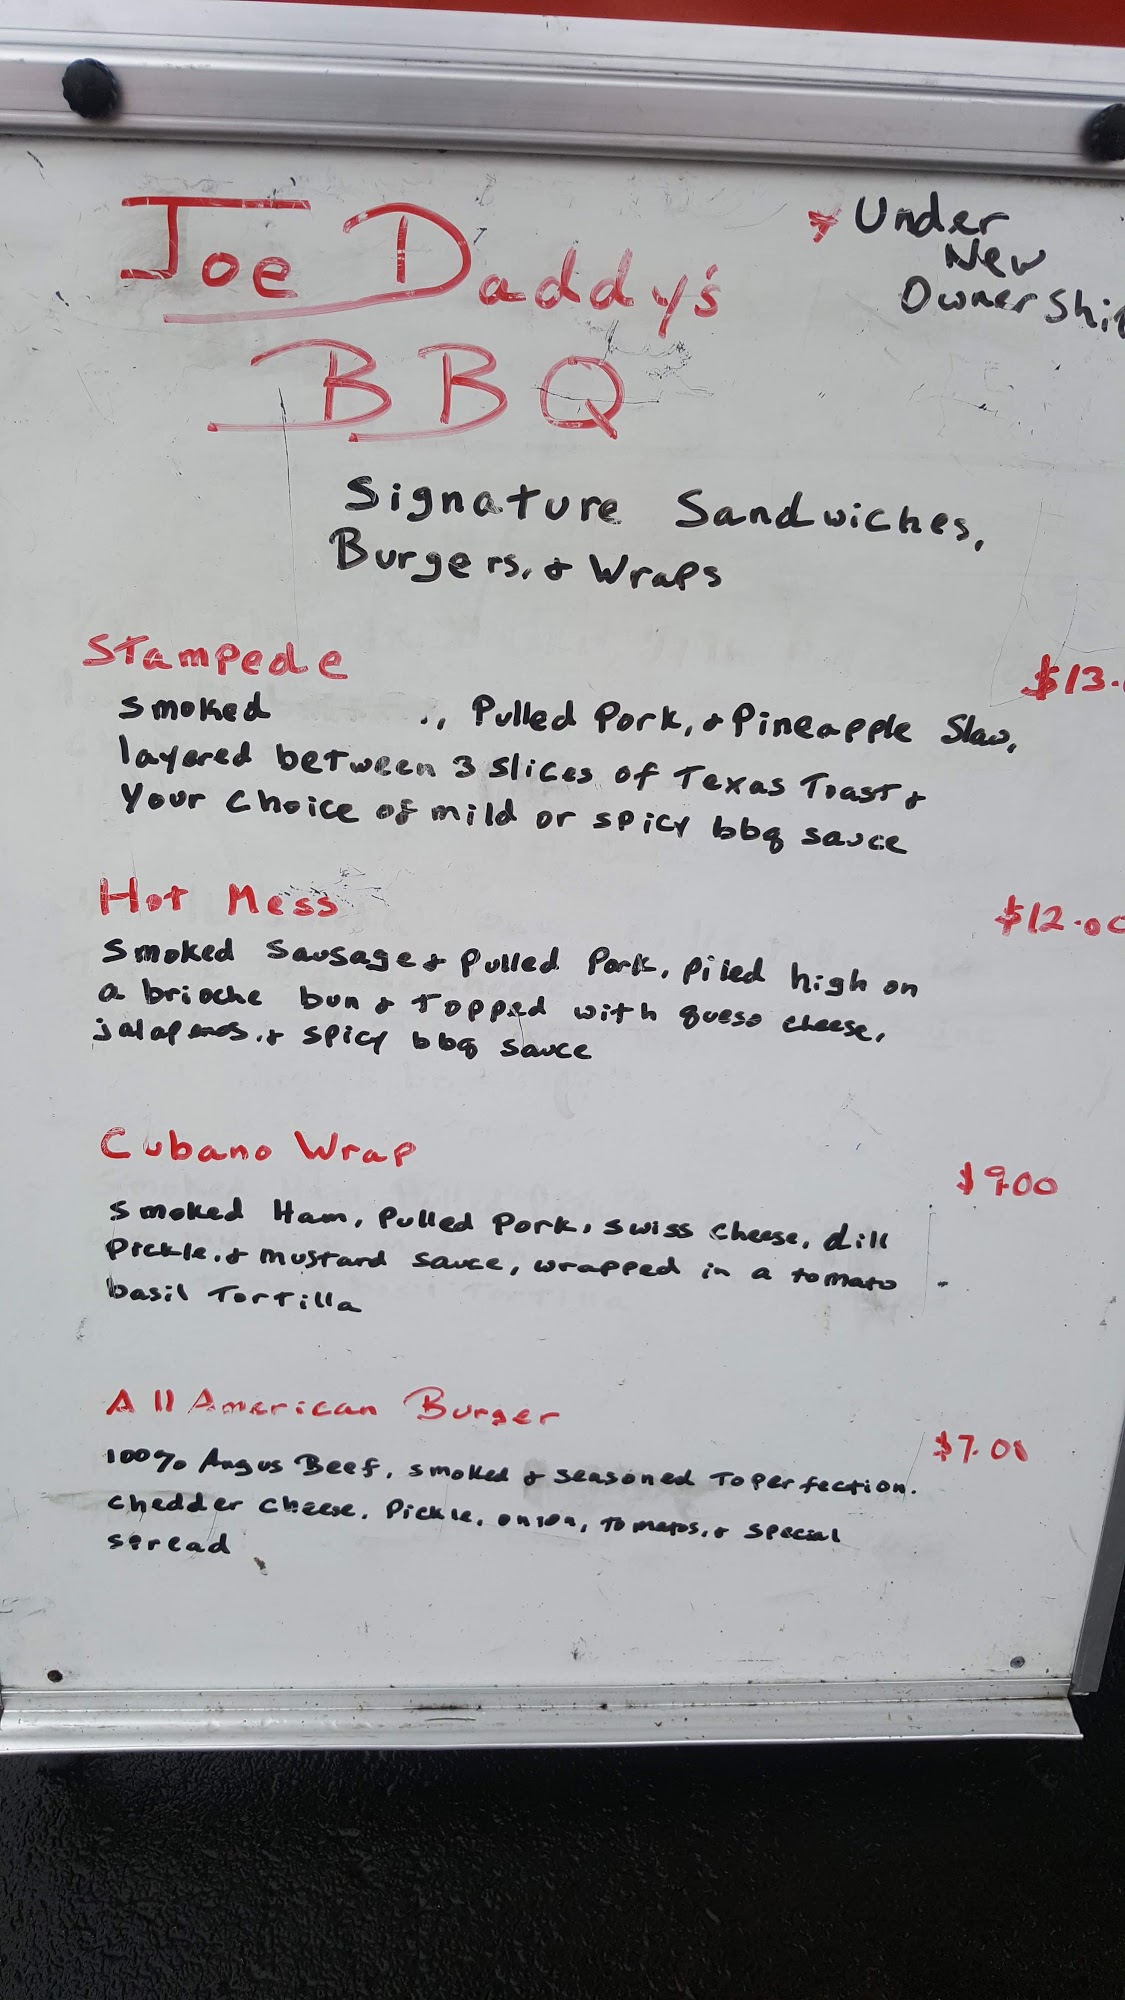 Joe Daddy's
BBQ
* Under
New
Ownership
Signature Sandwiches,
Burgers, & Wraps
Stampede
$13.
Smoked , Pulled Pork, & Pineapple Slaw,
layered between 3 slices of Texas Toast &
Your Choice of mild or spicy bbq sauce
Hot Mess
$12.00
Smoked Sausage & Pulled Pork, piled high on
a brioche bun & Topped with queso cheese,
jalapenos, & spicy bbq sauce
Cubano Wrap
$9.00
Smoked Ham, Pulled Pork, Swiss Cheese, dill
Pickle, & mustard sauce, wrapped in a tomato
basil Tortilla
All American Burger
$7.00
100% Angus Beef, smoked & seasoned To perfection.
Chedder Cheese, Pickle, onion, Tomatos, & special
spread